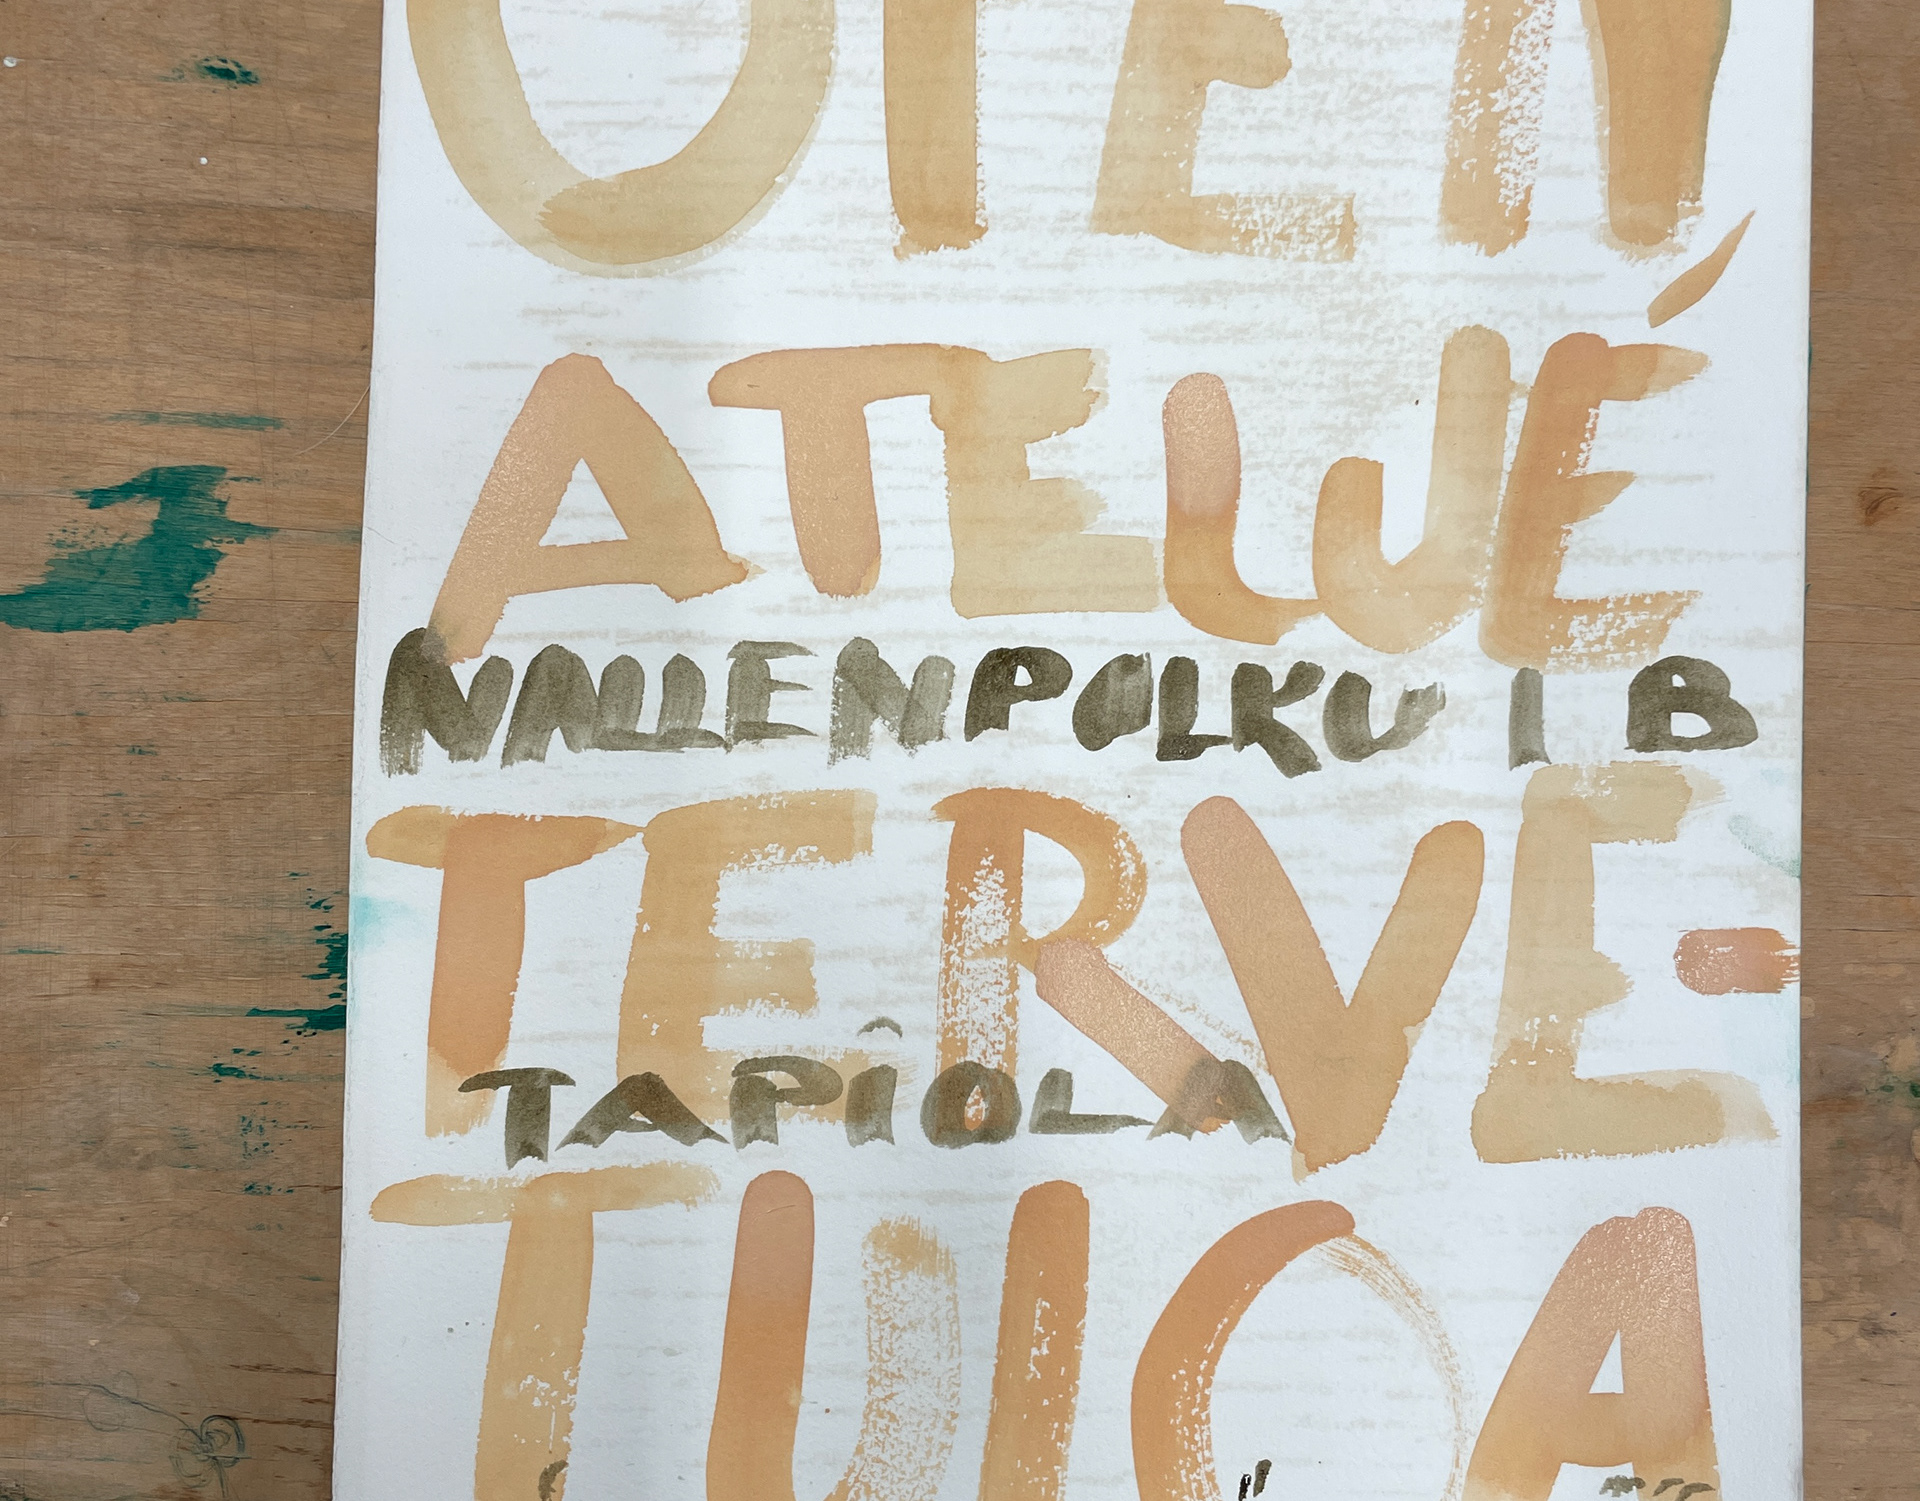 ATELJÉ
NALLENPOLKU 1 B
TERVE-
TAPIOLA
TULOA